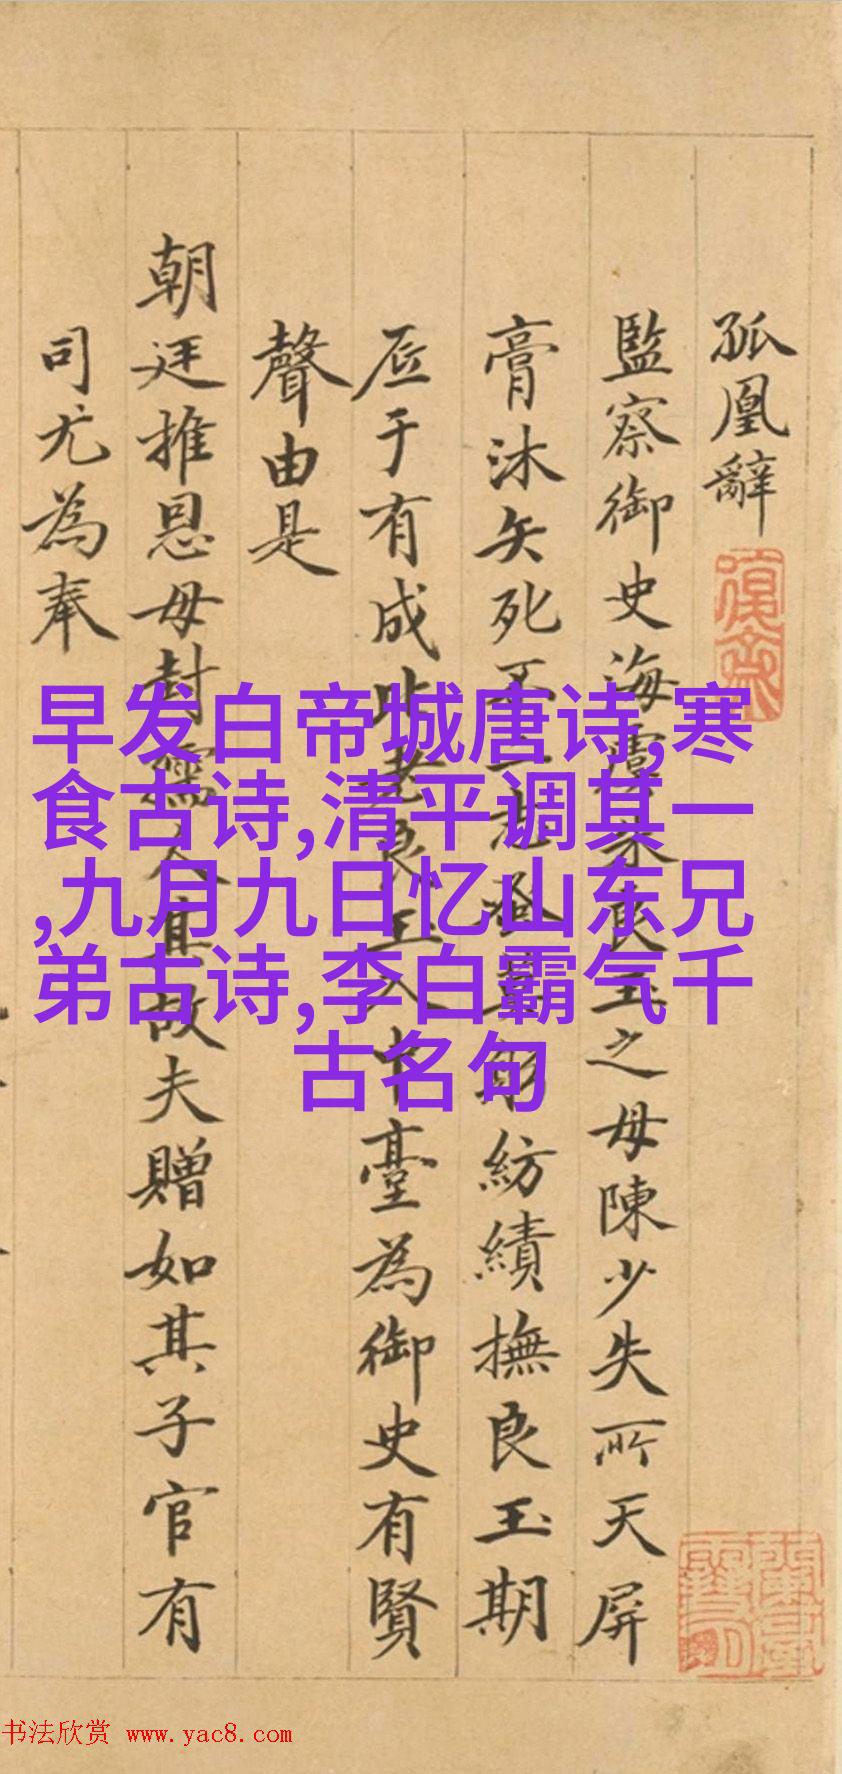 孤凰辭
監察御史海虞朱良玉之母陳少失所天屏
膏沐矢死不二志蚤暮紡績撫良玉期
于有成良玉入中臺為御史有賢
聲由是
朝廷推恩母封孺人其故夫贈如其子官有
司尤為奉
早发白帝城唐诗,寒
食古诗,清平调其一
,九月九日忆山东兄
弟古诗,李白霸气千
古名句
书法欣赏 www.yac8.com